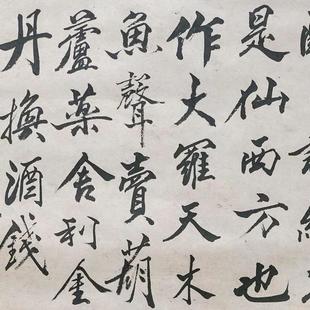 是仙西方也
作大羅天木
魚聲賣葫
蘆藥舍利金
丹換酒錢